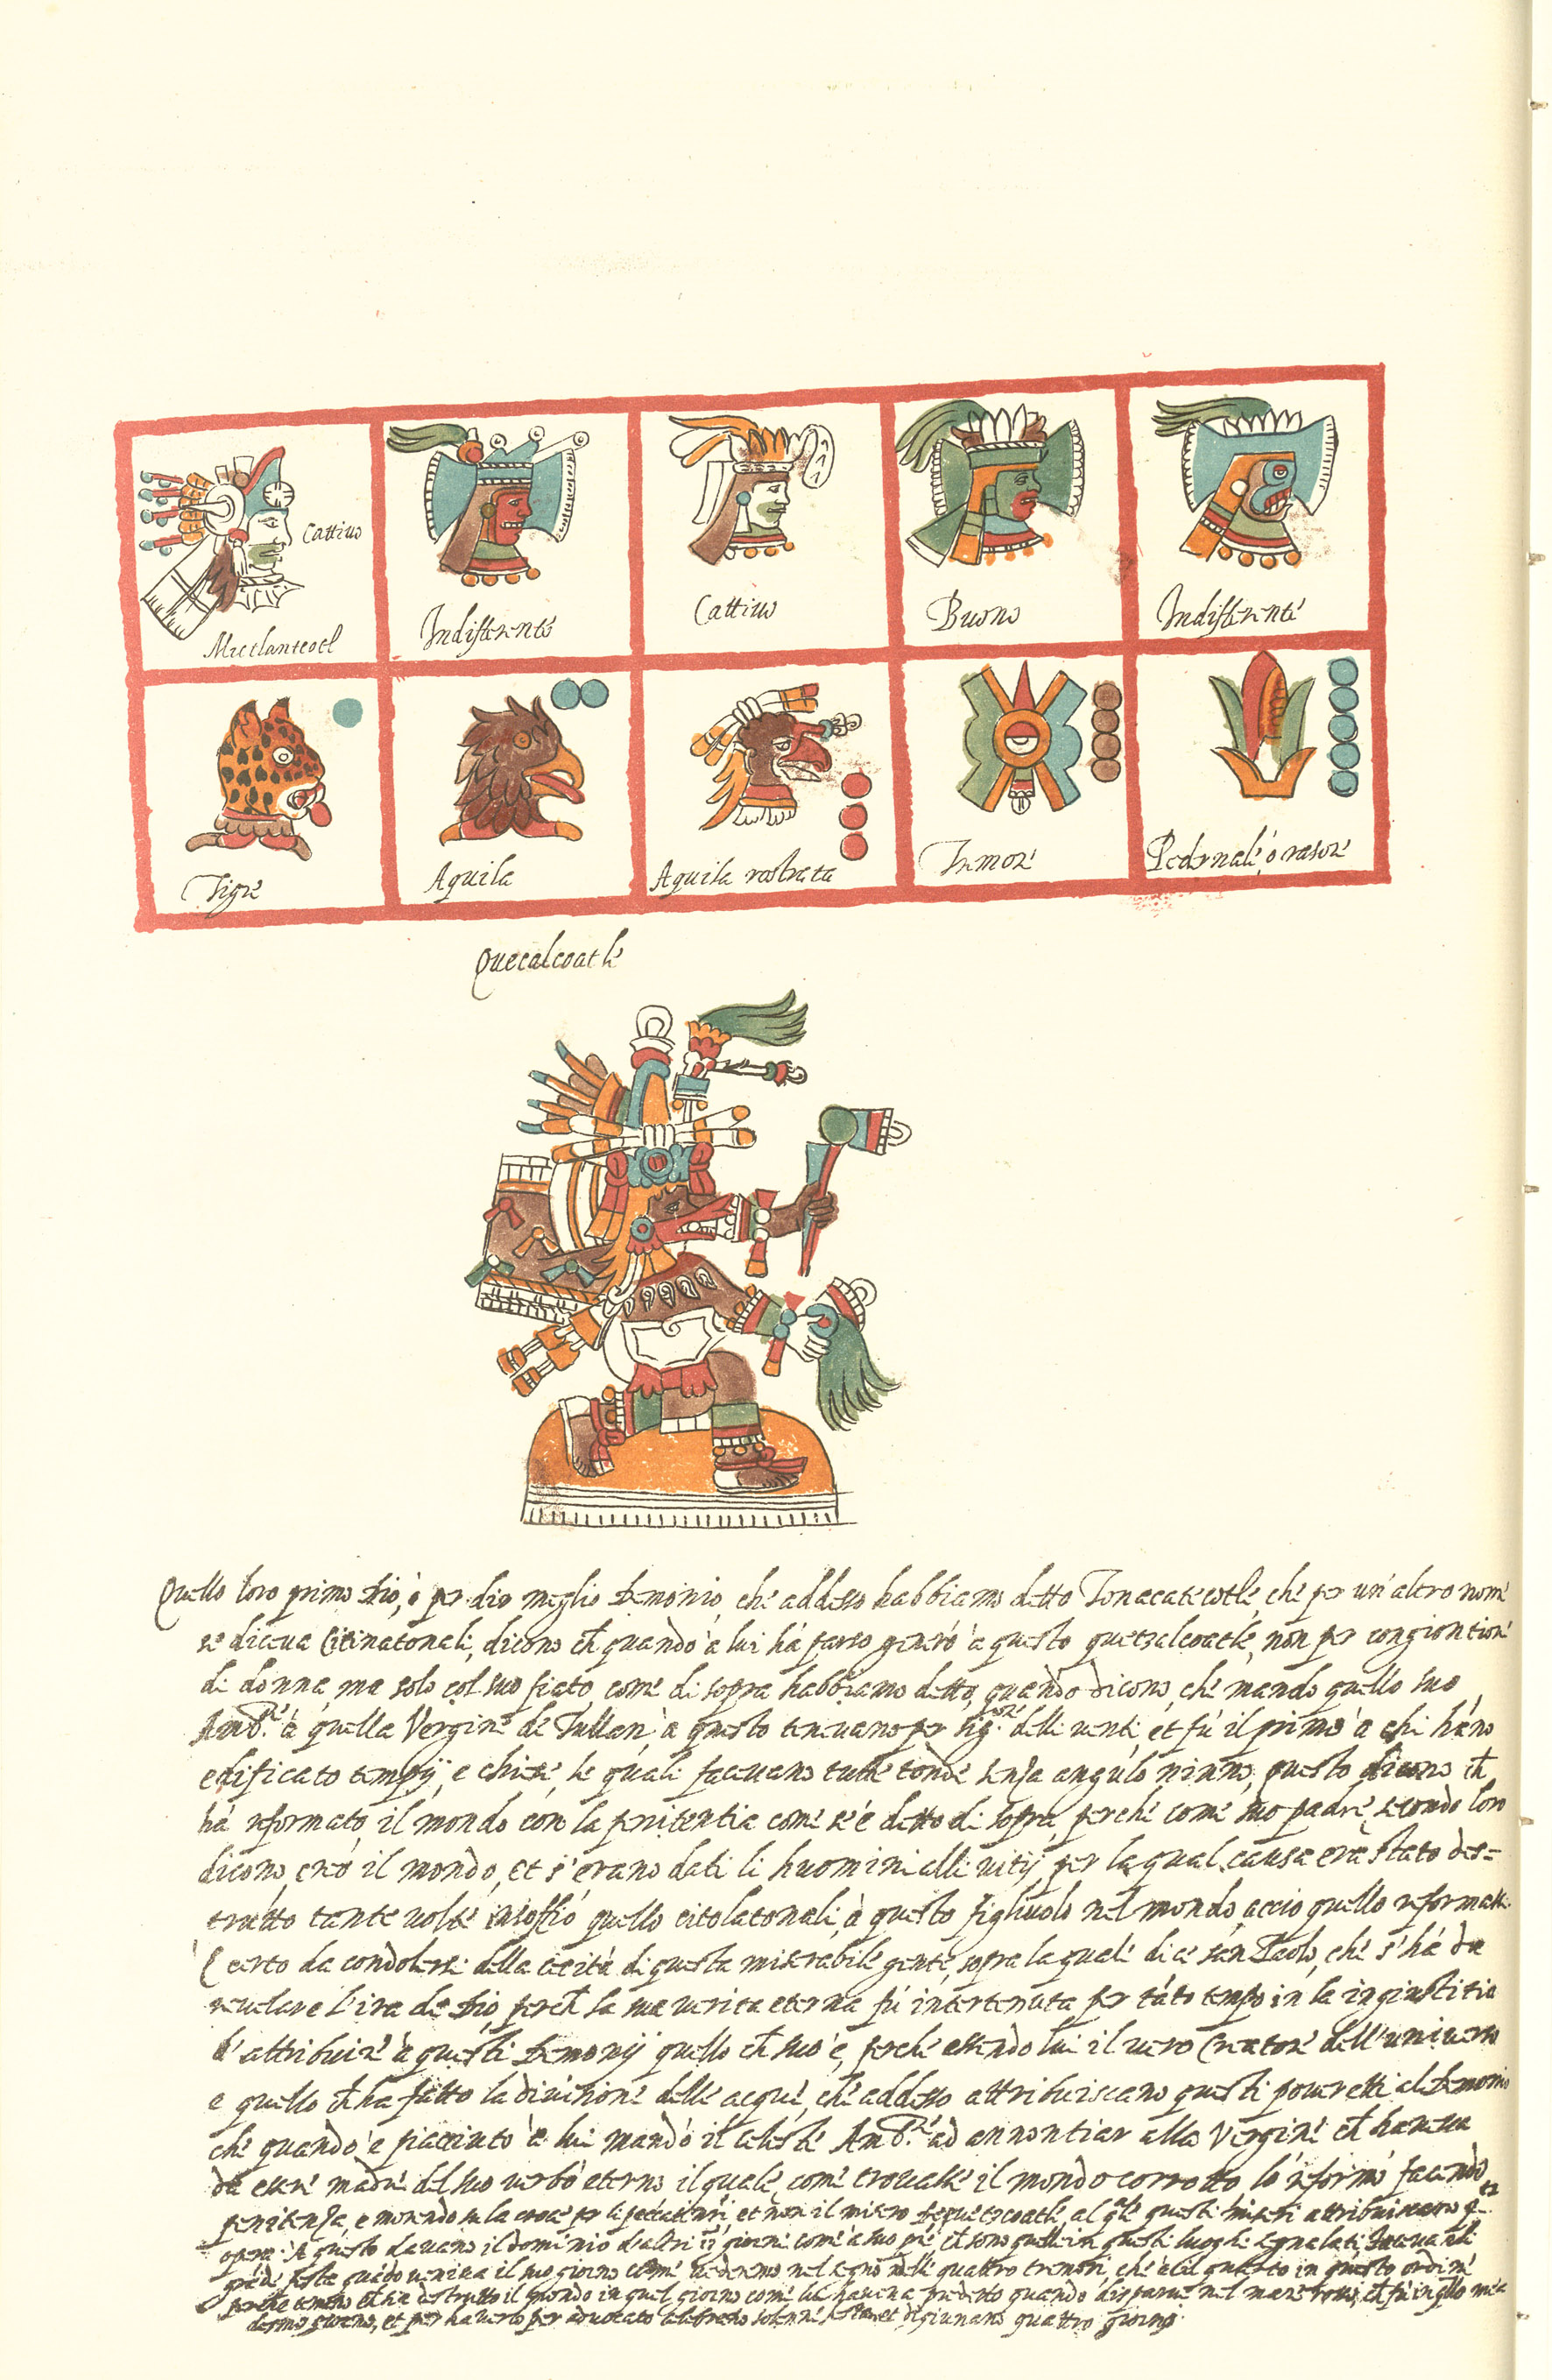 Cattiuo
Mictlanteotl
Indifferente
Cattiuo
Buono
Indifferente
Tigre
Aquila
Aquila rostrata
Tremore
Pedernale, ò rasore
Quecalcoatle
Quello loro primo Dio, ò per dir meglio Demonio, che addesso habbiamo detto Tonacatecotle, che per un'altro nome
se diceua Citinatonali, dicono ch̃ quando à lui hà parso generò à questo quetzalcoatle, non per congiontione
di donna, ma solo col suo fiato, come di sopra habbiamo detto, quando dicono, che mandò quello suo
Amb.re à quella Vergine de Tullan, à questo teneuano per sig.re delli uenti, et fù il primo à chi hãno
edificato tempij, e chiese, le quali faceuano tutte tonde senza angulo ninno, questo dicono ch̃
hà reformato il mondo con la penitentia come se è detto di sopra, perche come suo padre, secondo loro
dicono, creò il mondo, et s'erano dati li huomini alli uitij, per la qual causa era stato des=
trutto tante uolte, insoffiò quello citolatonali, à questo figliuolo nel mondo, accio quello reformasse.
Certo da condolersi della cecità di questa miserabile gente, sopra la quale dice san Paolo, che s'hà da
reuelare l'ira de Dio, perch̃ la sua uerita eterna fù intertenuta per tãto tempo in la ingiustitia
d'attribuire à questi Demonij quello ch̃ suo è, perche essendo lui il uero Creatore dell'uniuerso
e quello ch̃ ha fatto la diuisione delle acque, che addesso attribuiscano questi poueretti al Demonio
che quando è piacciuto à lui mandò il celeste Amb.re ad annontiar alla Vergine ch̃ haueua
da essere madre del suo uerbo eterno, il quale, come trouasse il mondo corrotto lo reformò facendo
penitenza, e morendo su la croce per li peccati nri, et non il misero
opera. A questo dauano il dominio d'altri 13 giorni come
festa quãdo ueniua il suo giorno come uederemo nel segno delli quattro tremori, che è il quarto in questo ordine
perche ch̃ ha destrutto il mondo in quel giorno come quando disparue nel mare rosso,
giorno, et per hauerlo per aduocato et digiunano quattro giorni.